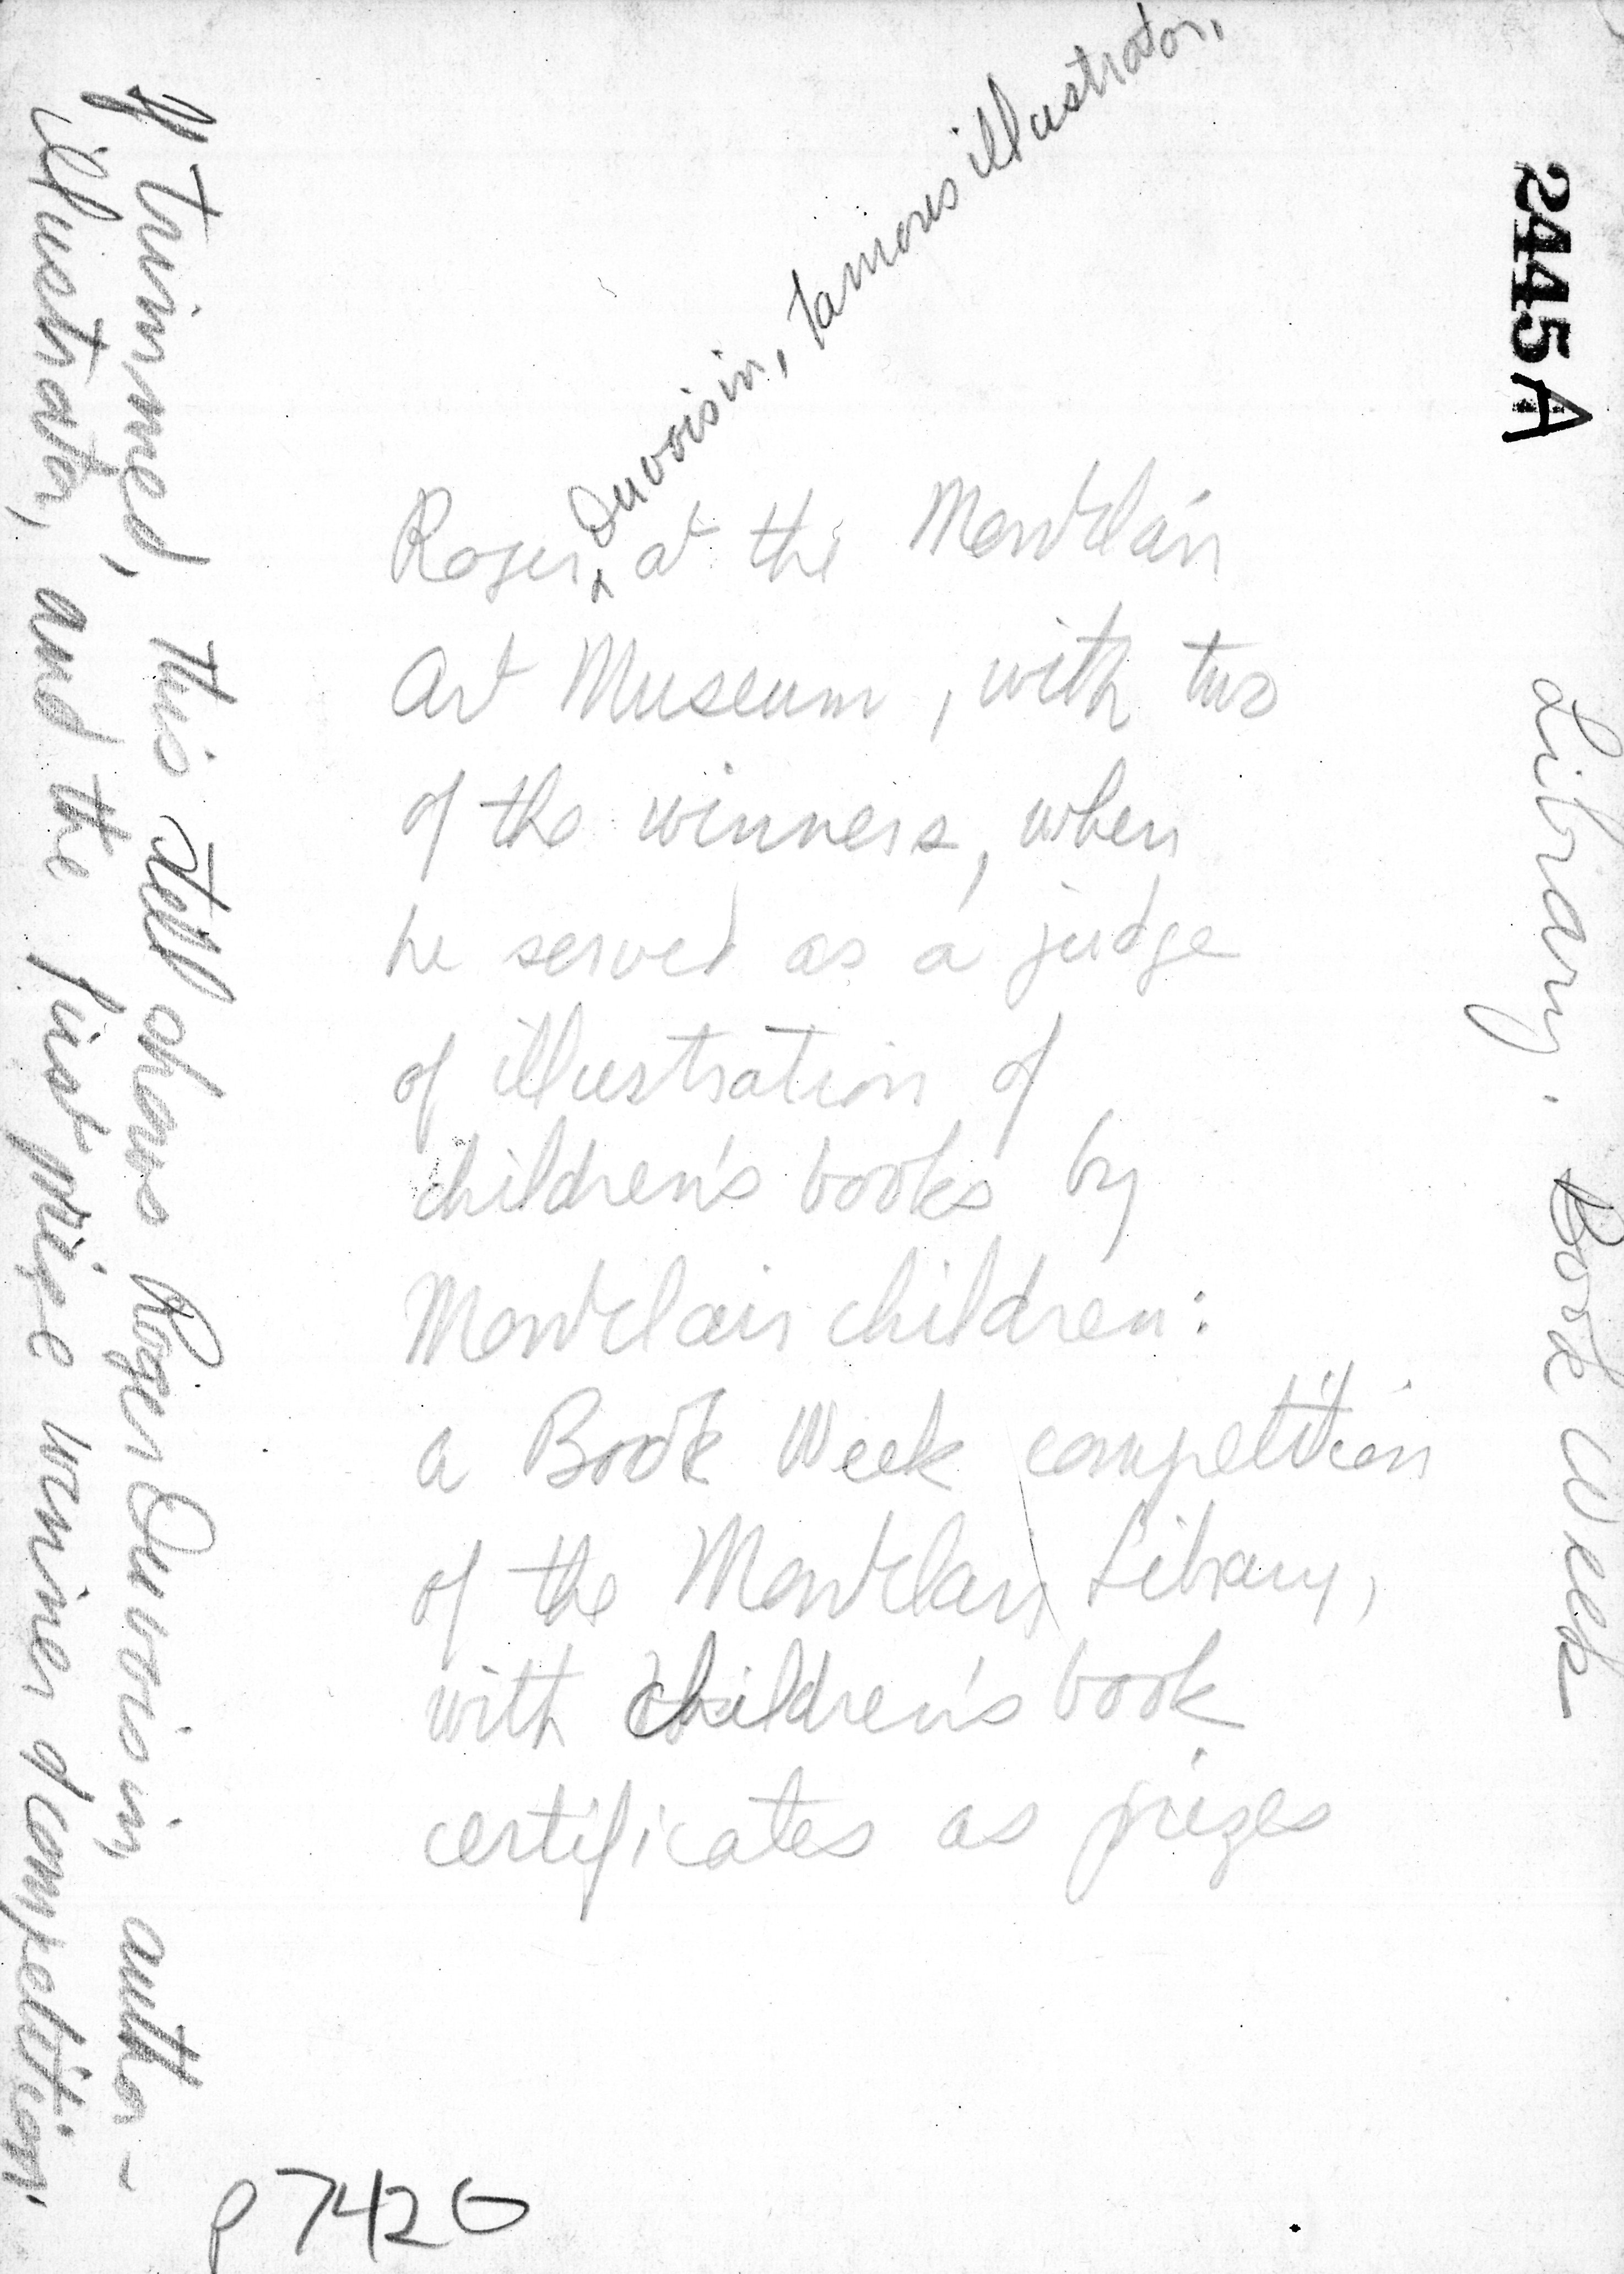 2445A
Library. Book Week
Duvoisin, famous illustrator,
Roger ^ at the Montclair
Art Museum, with two
of the winners, when
he served as a judge
of illustration of
children's books by
Montclair children:
a Book Week competition
of the Montclair Library,
with children's book
certificates as prizes
If trimmed, this still shows Roger Duvoisin, author-
illustrator, and the first prize winner of competition.